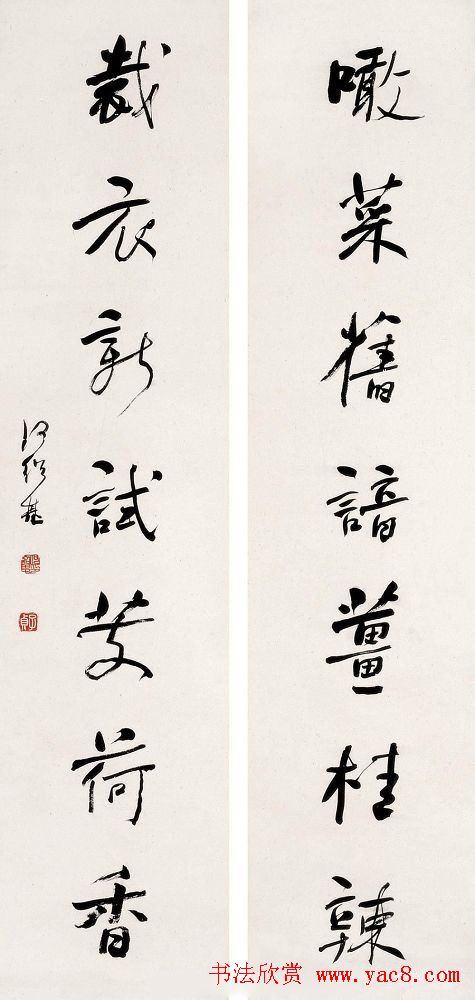 噉菜舊諳薑桂辣
裁衣新試芰荷香
何紹基
子貞
书法欣赏 www.yac8.com